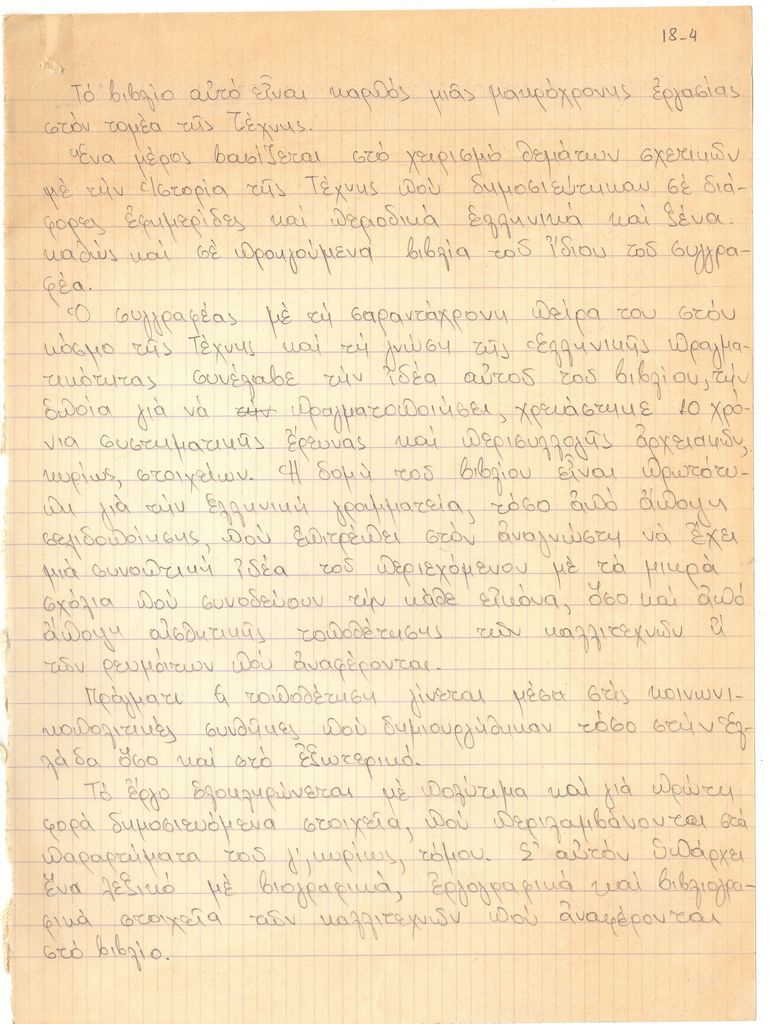 18-4
Τό βιβλίο αὐτό εἶναι καρπός μιᾶς μακρόχρονης ἐργασίας
στόν τομέα τῆς Τέχνης.
Ἕνα μέρος βασίζεται στό χειρισμό θεμάτων σχετικῶν
μέ τήν Ἱστορία τῆς Τέχνης πού δημοσιεύτηκαν σέ διά-
φορες ἐφημερίδες καί περιοδικά ἑλληνικά καί ξένα.
καθώς καί σέ προηγούμενα βιβλία τοῦ ἴδιου τοῦ συγγρα-
φέα.
Ὁ συγγραφέας μέ τή σαραντάχρονη πείρα του στόν
κόσμο τῆς Τέχνης καί τή γνώση τῆς ἑλληνικῆς πραγμα-
τικότητας συνέλαβε τήν ἰδέα αὐτοῦ τοῦ βιβλίου, τήν
ὁποία γιά νά τήν πραγματοποιήσει, χρειάστηκε 10 χρό-
νια συστηματικῆς ἔρευνας καί περισυλλογῆς ἀρχειακῶν,
κυρίως, στοιχείων. Ἡ δομή τοῦ βιβλίου εἶναι πρωτότυ-
πη γιά τήν ἑλληνική γραμματεία, τόσο ἀπό ἄποψη
σελιδοποίησης, πού ἐπιτρέπει στόν ἀναγνώστη νά ἔχει
μιά συνοπτική ἰδέα τοῦ περιεχόμενου μέ τά μικρά
σχόλια πού συνοδεύουν τήν κάθε εἰκόνα, ὅσο καί ἀπό
ἄποψη αἰσθητικῆς τοποθέτησης τῶν καλλιτεχνῶν ἤ
τῶν ρευμάτων πού ἀναφέρονται.
Πράγματι ἡ τοποθέτηση γίνεται μέσα στίς κοινωνι-
κοπολιτικές συνθῆκες πού δημιουργήθηκαν τόσο στήν Ἑλ-
λάδα ὅσο καί στό ἐξωτερικό.
Τό ἔργο ὁλοκληρώνεται μέ πολύτιμα καί γιά πρώτη
φορά δημοσιευόμενα στοιχεῖα, πού περιλαμβάνονται στά
παραρτήματα τοῦ γ', κυρίως, τόμου. Σ' αὐτόν ὑπάρχει
ἕνα λεξικό μέ βιογραφικά, ἐργογραφικά καί βιβλιογρα-
φικά στοιχεῖα τῶν καλλιτεχνῶν πού ἀναφέρονται
στό βιβλίο.